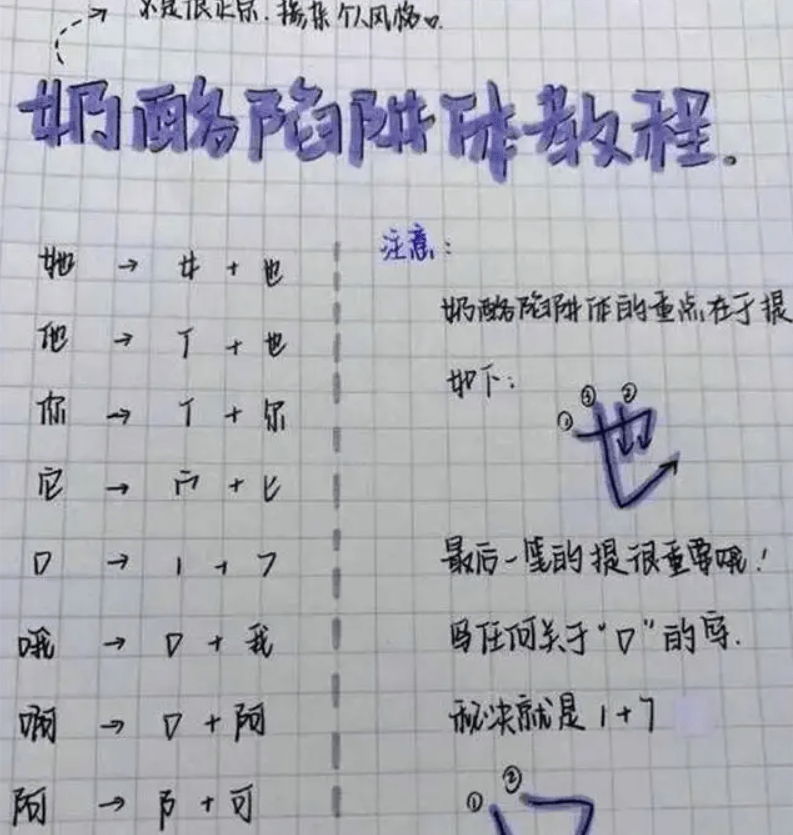 不是很正宗.掺杂个人风格
奶酪陷阱体教程。
她 → 女 + 也
他 → 亻 + 也
你 → 亻 + 尔
它 → 宀 + 匕
口 → 1 + 7
哦 → 口 + 我
啊 → 口 + 阿
阿 → 阝 + 可
注意:
奶酪陷阱体的重点在于提
如下:
① ③ ②
也
最后一笔的提很重要哦!
写任何关于“口”的字.
秘诀就是 1+7
① ②